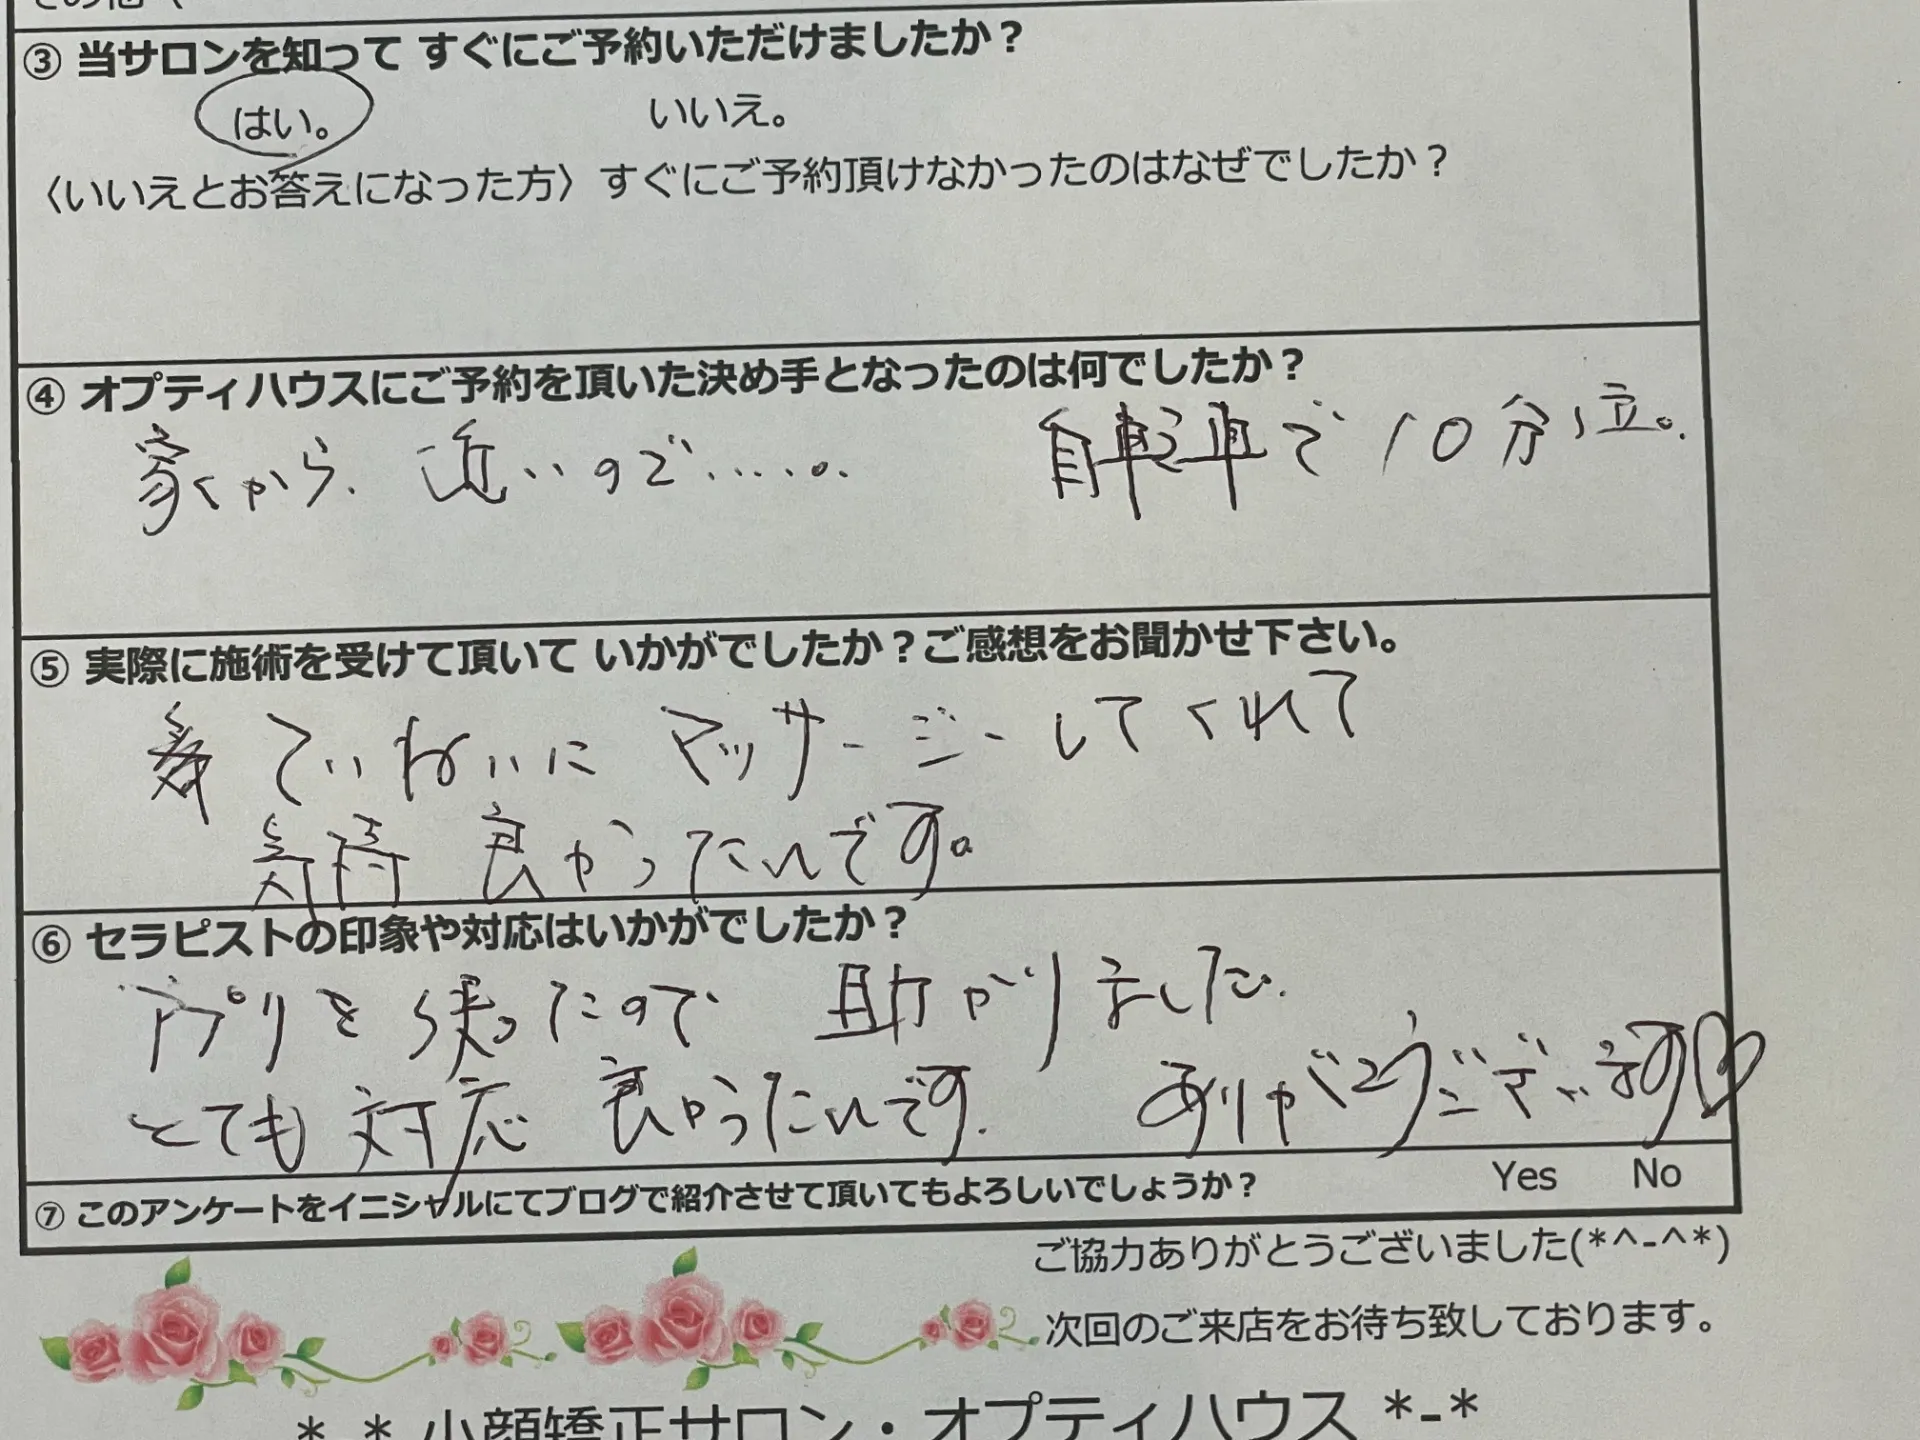 ③ 当サロンを知って すぐにご予約いただけましたか？
はい。 いいえ。
〈いいえとお答えになった方〉すぐにご予約頂けなかったのはなぜでしたか？
④ オプティハウスにご予約を頂いた決め手となったのは何でしたか？
家から. 近いので‥‥。. 自転車で10分位。.
⑤ 実際に施術を受けて頂いて いかがでしたか？ご感想をお聞かせ下さい。
ていねいに マッサージーしてくれて
気持 良かったんです。
⑥ セラピストの印象や対応はいかがでしたか？
アプリを 使ったので 助かりました.
とても 対応 良かったんです. ありがとうございます♡
⑦ このアンケートをイニシャルにてブログで紹介させて頂いてもよろしいでしょうか？ Yes No
ご協力ありがとうございました(*^-^*)
次回のご来店をお待ち致しております。
小顔矯正サロン・オプティハウス *-*